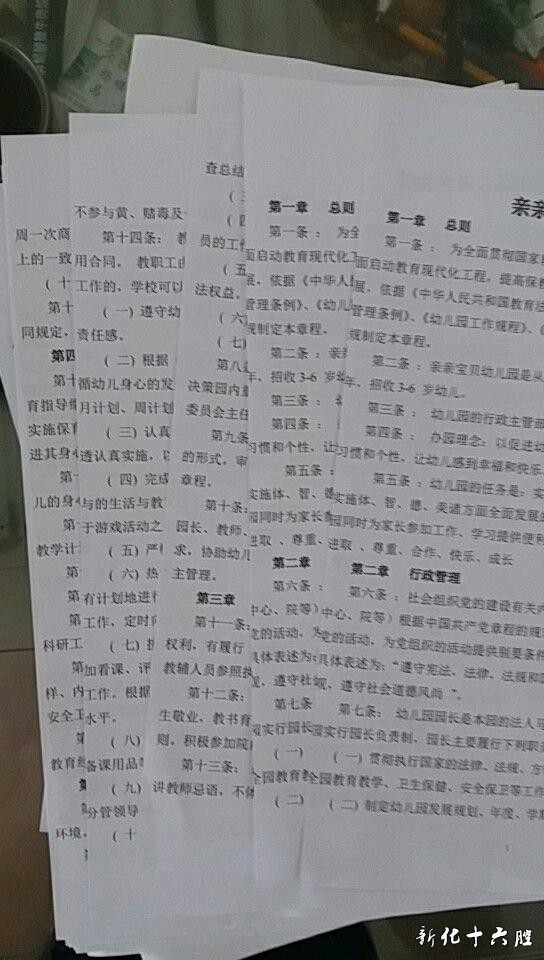 亲亲
第一章 总则
第一条 ： 为全面贯彻国家
面启动教育现代化工程，提高保教
展，依据《中华人民共和国教育法
管理条例》、《幼儿园工作规程》、《
规制定本章程。
第二条 ：亲亲宝贝幼儿园是从
年，招收 3-6 岁幼儿。
第三条 ： 幼儿园的行政主管部
第四条 ： 办园理念：以促进幼
习惯和个性，让幼儿感到幸福和快乐
第五条 ：幼儿园的任务是：实
实施体、智、德、美诸方面全面发展的
园同时为家长参加工作、学习提供便利
进取 、尊重、合作、快乐、成长
第二章 行政管理
第六条 ：社会组织党的建设有关内
中心、院等）根据中国共产党章程的规
党的活动，为党组织的活动提供别要条件
具体表述为：“遵守宪法、法律、法规和国
观，遵守社会道德风尚 ”。
第七条： 幼儿园园长是本园的法人
园实行园长负责制，园长主要履行下列职责
（一）贯彻执行国家的法律、法规、方
全园教育教学、卫生保健、安全保卫等工作
（二）制定幼儿园发展规划、年度、学期
第一章 总则
第一条 ： 为全
面启动教育现代化工
展，依据《中华人
管理条例》、《幼儿
规制定本章程。
第二条 ：亲
年，招收 3-6
第三条 ：
第四条 ：
习惯和个性，让
第五条 ：
实施体、智、德
园同时为家长
进取 、尊重、
第二章
第六条 ：
中心、院等）
党的活动，为
具体表述为：
观，遵守社
第七条
园实行园长
（一）
全园教育
（二）
查总结
（三
（四
员的工作
（五
法权益。
（六
（七）
第八
决策园内
委员会主任
第九条
的形式，审
章程。
第十条：
园长、教师、
求，协助幼儿
主管理。
第三章
第十一条：
权利，有履行
教辅人员参照执
第十二条：
生敬业，教书育
则。积极参加院
第十三条：
讲教师忌语，不体
不参与黄、赌毒及
第十四条： 教
用合同。 教职工
工作的，学校可以
（一）遵守幼
责任感。
（二）根据
循幼儿身心的发
月计划、周计划
（三）认真
透认真实施，
（四）完成
与的生活与教
于游戏活动之
（五）严
（六）热
有计划地进行
工作，定时
（七）
加看课、评
工作。根据
水平。
（八）
备课用品
（九）
分管领导
（十
周一次商
上的一致
（十
第十
同规定，
第四
第十
育指导
实施保育
进其身心
第十
儿的身心
第
教学计
第
第
科研工
第
样、内
安全工
第
教育
第
环境。
新化十六腔